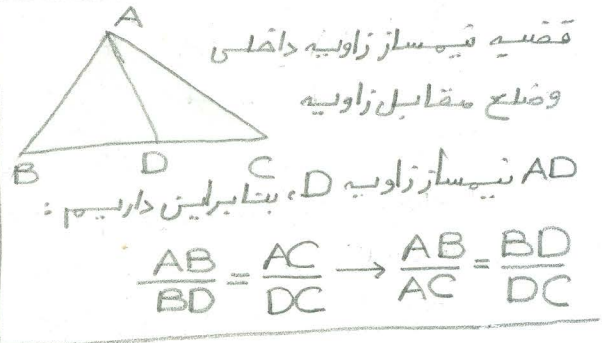 A
قضیه نیمساز زاویه داخلی
وضلع مقابل زاویه
B D C
AD نیمساز زاویه D، بنابراین داریم :
AB/BD = AC/DC → AB/AC = BD/DC